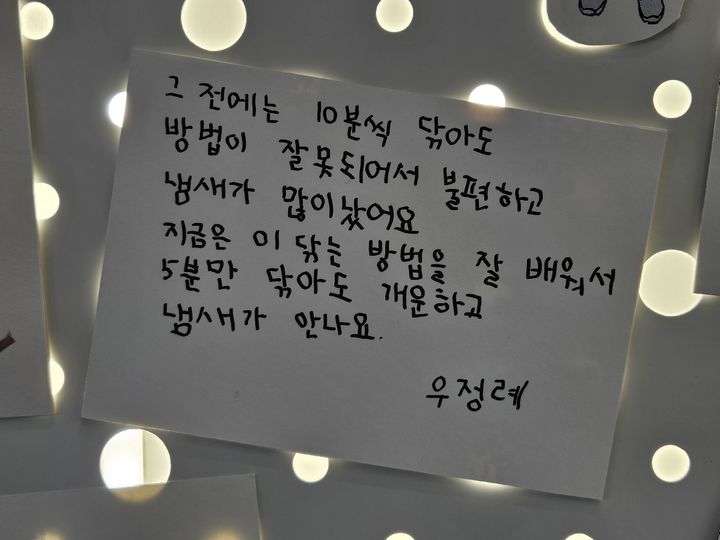 그 전에는 10분씩 닦아도
방법이 잘못되어서 불편하고
냄새가 많이 났어요
지금은 이 닦는 방법을 잘 배워서
5분만 닦아도 개운하고
냄새가 안나요.
우정례